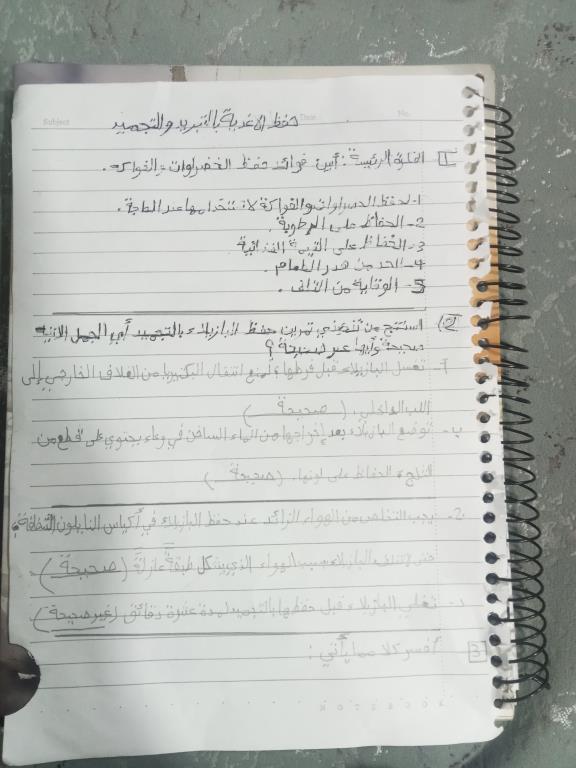 Subject Date No.
حفظ الاغدية بالتبريد والتجميد
1 الفكرة الرئيسة: أبين فوائد حفظ الخضراوات والفواكه.
1- لحفظ الخضراوات والفواكة لاستخدامها عند الحاجة.
2- الحفاظ على الرطوبة.
3- الحفاظ على القيمة الغذائية
4- الحد من هدر الطعام.
5- الوقاية من التلف.
2 استنتج من تنفيذي تمرين حفظ البازيلاء بالتجميد أي الجمل الاتية
صحيحة وأيها غير صحيحة؟
أ- تغسل البازيلاء قبل فرطها؛ لمنع انتقال البكتيريا من الغلاف الخارجي إلى
اللب الداخلي. (صحيحة)
ب- توضع البازيلاء بعد إخراجها من الماء الساخن في وعاء يحتوي على قطع من
الثلج؛ للحفاظ على لونها. (صحيحة)
يجب التخلص من الهواء الزائد عند حفظ البازيلاء في أكياس النايلون الشفافة؛
حتى لا تتلف البازيلاء بسبب الهواء الذي يشكل طبقة عازلة (صحيحة).
د- تغلى البازيلاء قبل حفظها بالتجميد لمدة عشرة دقائق (غير صحيحة)
3 أفسر كلا مما يأتي: